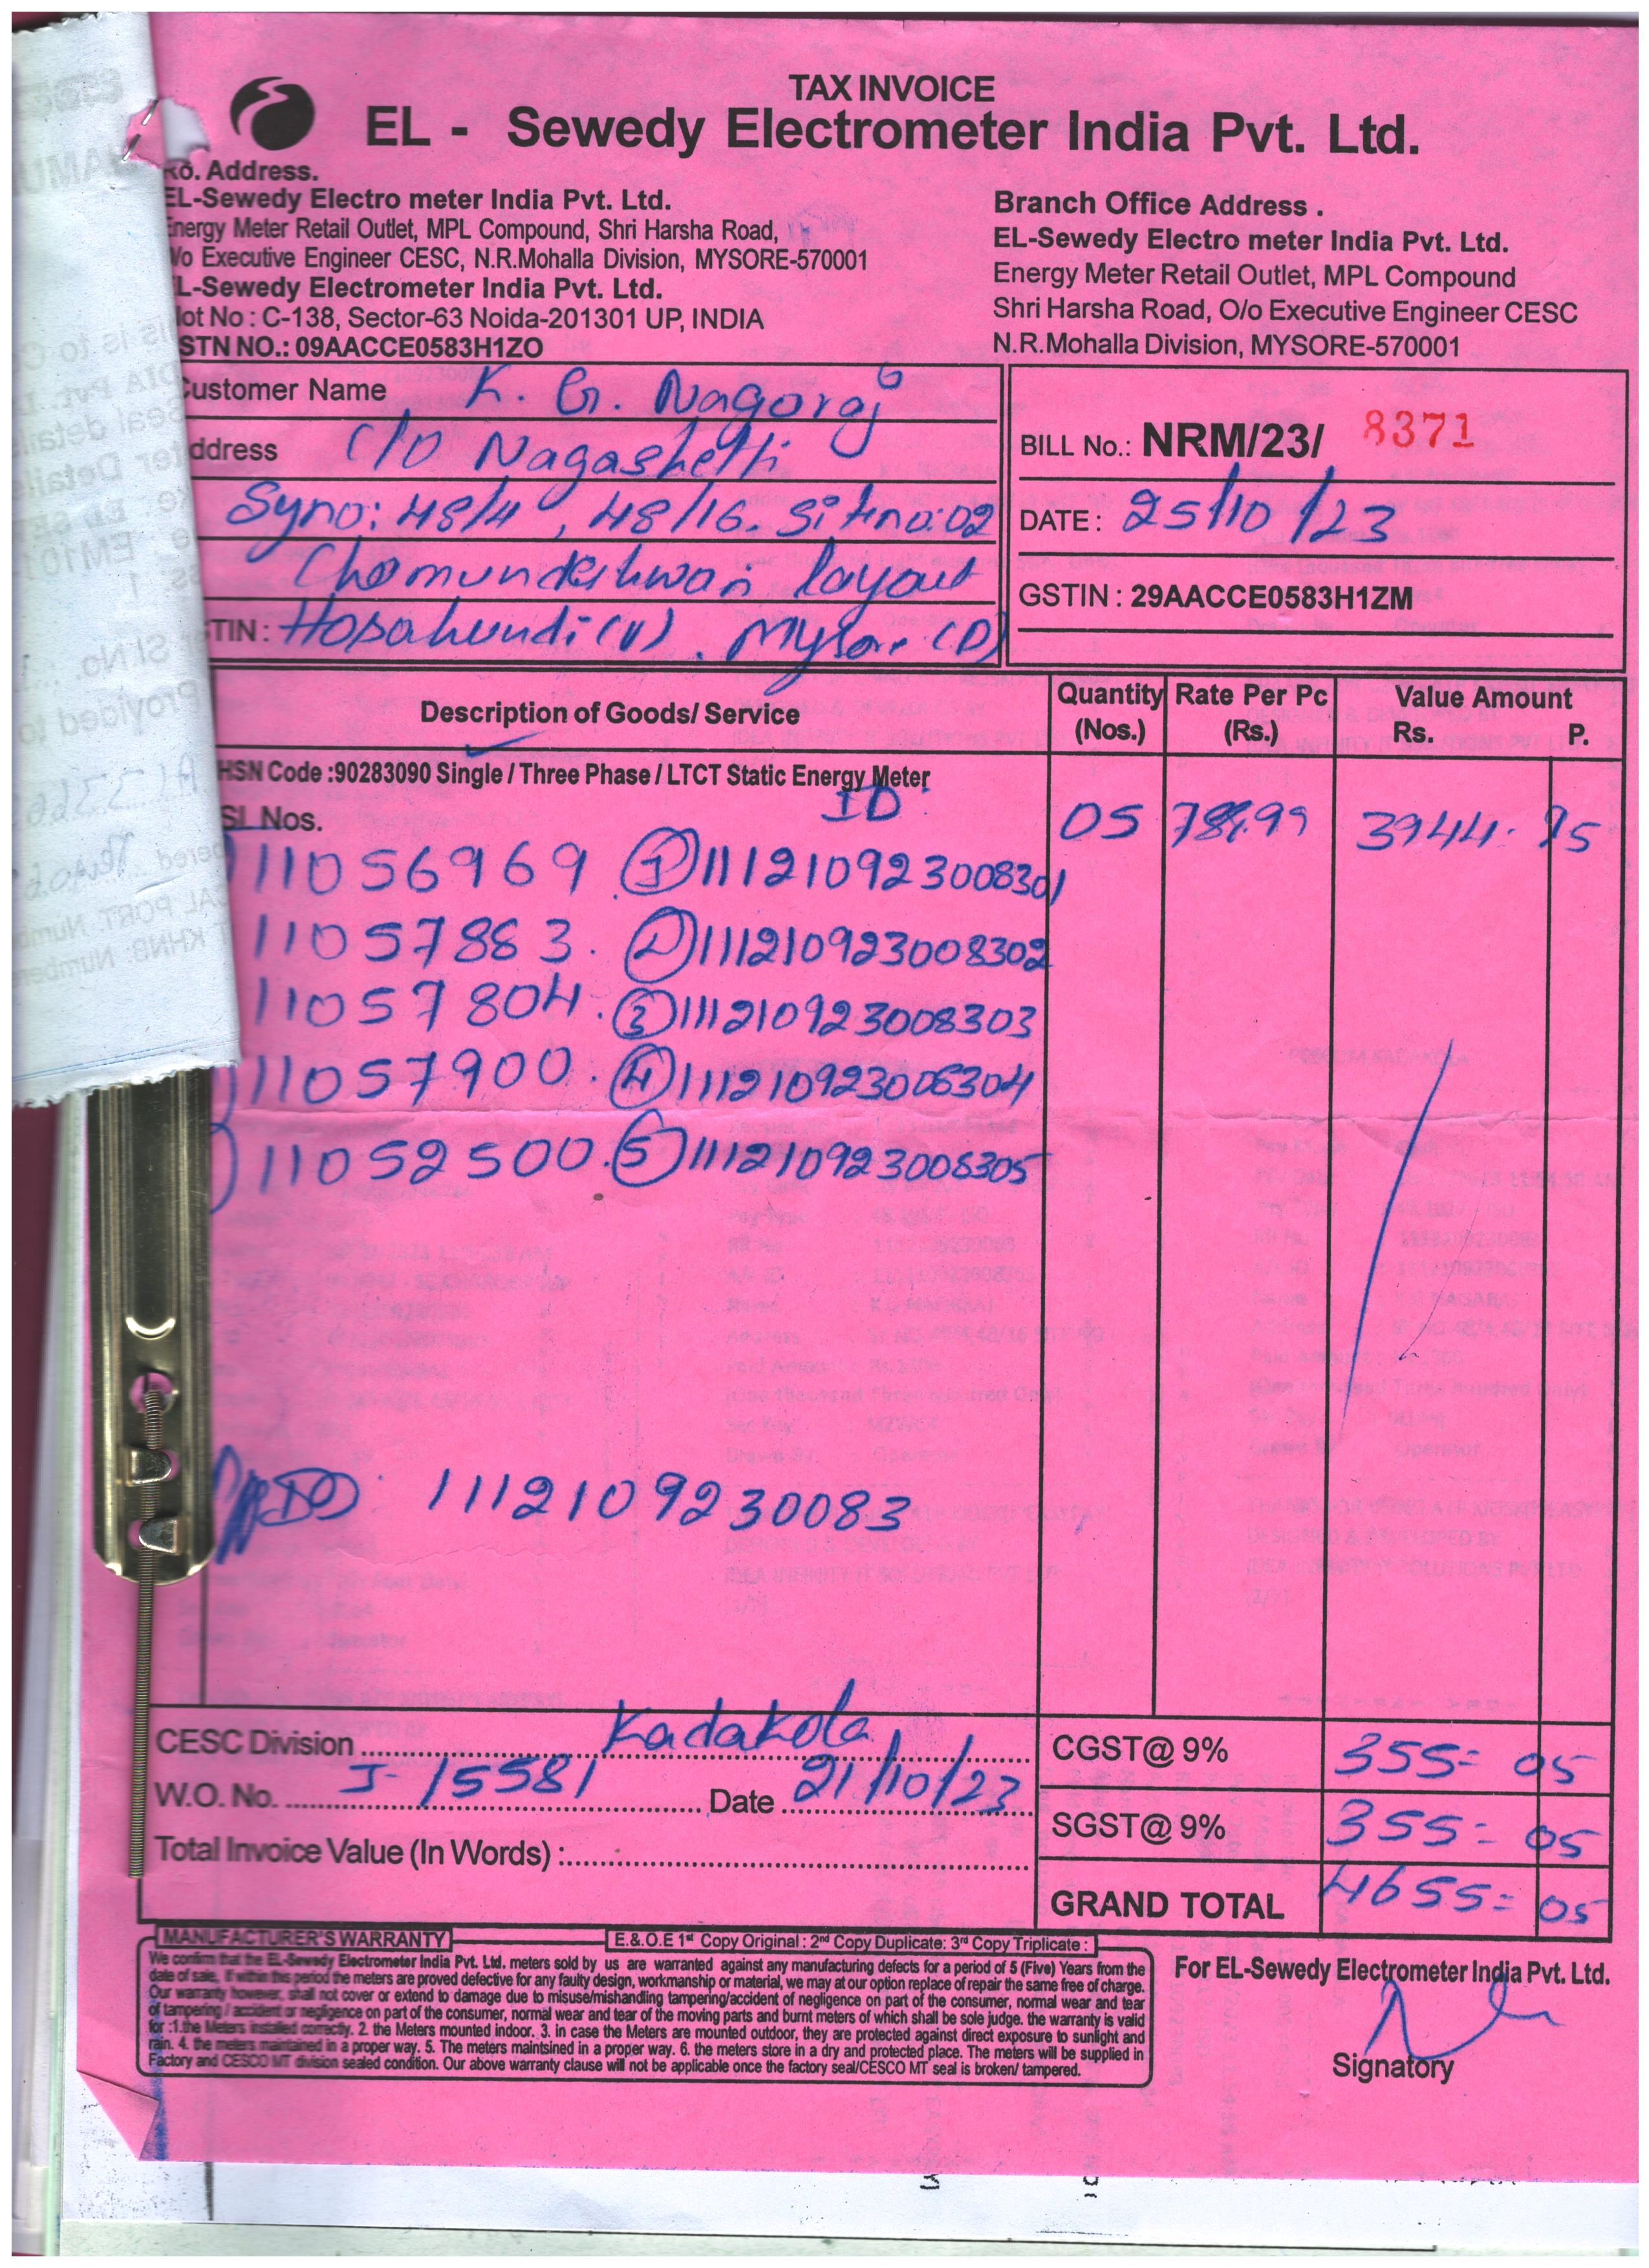 TAX INVOICE
EL - Sewedy Electrometer India Pvt. Ltd.
Ro. Address.
EL-Sewedy Electro meter India Pvt. Ltd.
Energy Meter Retail Outlet, MPL Compound, Shri Harsha Road,
/o Executive Engineer CESC, N.R.Mohalla Division, MYSORE-570001
L-Sewedy Electrometer India Pvt. Ltd.
lot No : C-138, Sector-63 Noida-201301 UP, INDIA
STN NO.: 09AACCE0583H1ZO
Branch Office Address .
EL-Sewedy Electro meter India Pvt. Ltd.
Energy Meter Retail Outlet, MPL Compound
Shri Harsha Road, O/o Executive Engineer CESC
N.R.Mohalla Division, MYSORE-570001
Customer Name K. G. Nagaraj
ddress C/O Nagashetti
Syno: 48/4, 48/16. Siteno: 02
Chamundeshwari layout
TIN : Hosahundi (V). Mysore (D)
BILL No.: NRM/23/ 8371
DATE : 25/10/23
GSTIN : 29AACCE0583H1ZM
Description of Goods/ Service Quantity (Nos.) Rate Per Pc (Rs.) Value Amount Rs. P.
HSN Code :90283090 Single / Three Phase / LTCT Static Energy Meter
SI. Nos. ID 05 3944. 95
11056969 1 111210923008301
11057883. 2 111210923008302
11057804. 3 111210923008303
11057900. 4 111210923008304
11052500. 5 111210923008305
1112109230083
CESC Division Kadakola
W.O. No. J-15581 Date 21/10/23
Total Invoice Value (In Words) :
CGST@ 9% 355= 05
SGST@ 9% 355= 05
GRAND TOTAL 4655= 05
MANUFACTURER'S WARRANTY
E.&.O.E 1st Copy Original : 2nd Copy Duplicate: 3rd Copy Triplicate :
We confirm that the EL-Sewedy Electrometer India Pvt. Ltd. meters sold by us are warranted against any manufacturing defects for a period of 5 (Five) Years from the
date of sale. If within this period the meters are proved defective for any faulty design, workmanship or material, we may at our option replace of repair the same free of charge.
Our warranty however, shall not cover or extend to damage due to misuse/mishandling tampering/accident of negligence on part of the consumer, normal wear and tear
of tampering / accident or negligence on part of the consumer, normal wear and tear of the moving parts and burnt meters of which shall be sole judge. the warranty is valid
for :1.the Meters installed correctly. 2. the Meters mounted indoor. 3. in case the Meters are mounted outdoor, they are protected against direct exposure to sunlight and
rain. 4. the meters maintained in a proper way. 5. The meters maintsined in a proper way. 6. the meters store in a dry and protected place. The meters will be supplied in
Factory and CESCO MT division sealed condition. Our above warranty clause will not be applicable once the factory seal/CESCO MT seal is broken/ tampered.
For EL-Sewedy Electrometer India Pvt. Ltd.
Signatory